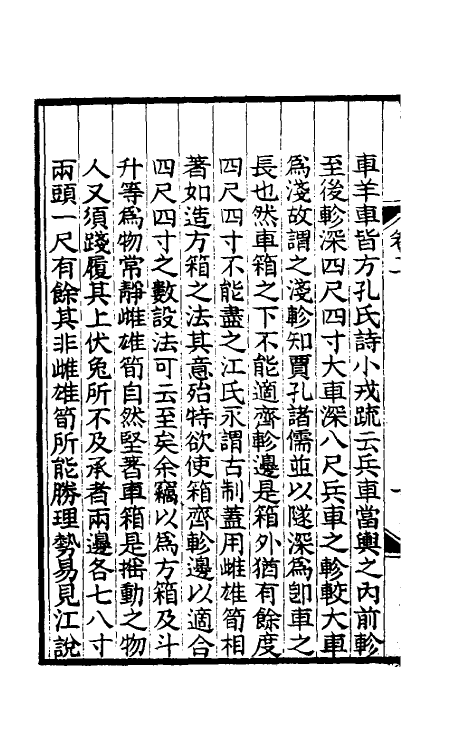 車羊車皆方孔氏詩小戎疏云兵車當輿之內前軫
至後軫深四尺四寸大車深八尺兵車之軫較大車
爲淺故謂之淺軫知賈孔諸儒並以隧深爲卽車之
長也然車箱之下不能適齊軫邊是箱外猶有餘度
四尺四寸不能盡之江氏永謂古制蓋用雌雄筍相
著如造方箱之法其意殆特欲使箱齊軫邊以適合
四尺四寸之數設法可云至矣余竊以爲方箱及斗
升等爲物常靜雌雄筍自然堅著車箱是搖動之物
人又須踐履其上伏兔所不及承者兩邊各七八寸
兩頭一尺有餘其非雌雄筍所能勝理勢易見江說